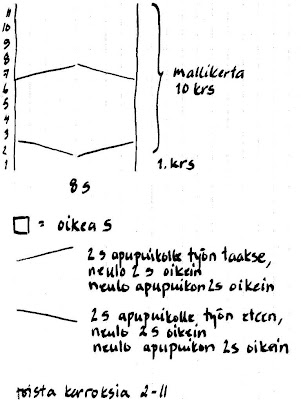 11
10
9
8
7
6
5
4
3
2
1
mallikerta
10 krs
1. krs
8s
= oikea s
2s apupuikolle työn taakse,
neulo 2s oikein
neulo apupuikon 2s oikein
2s apupuikolle työn eteen,
neulo 2s oikein
neulo apupuikon 2s oikein
toista kerroksia 2-11